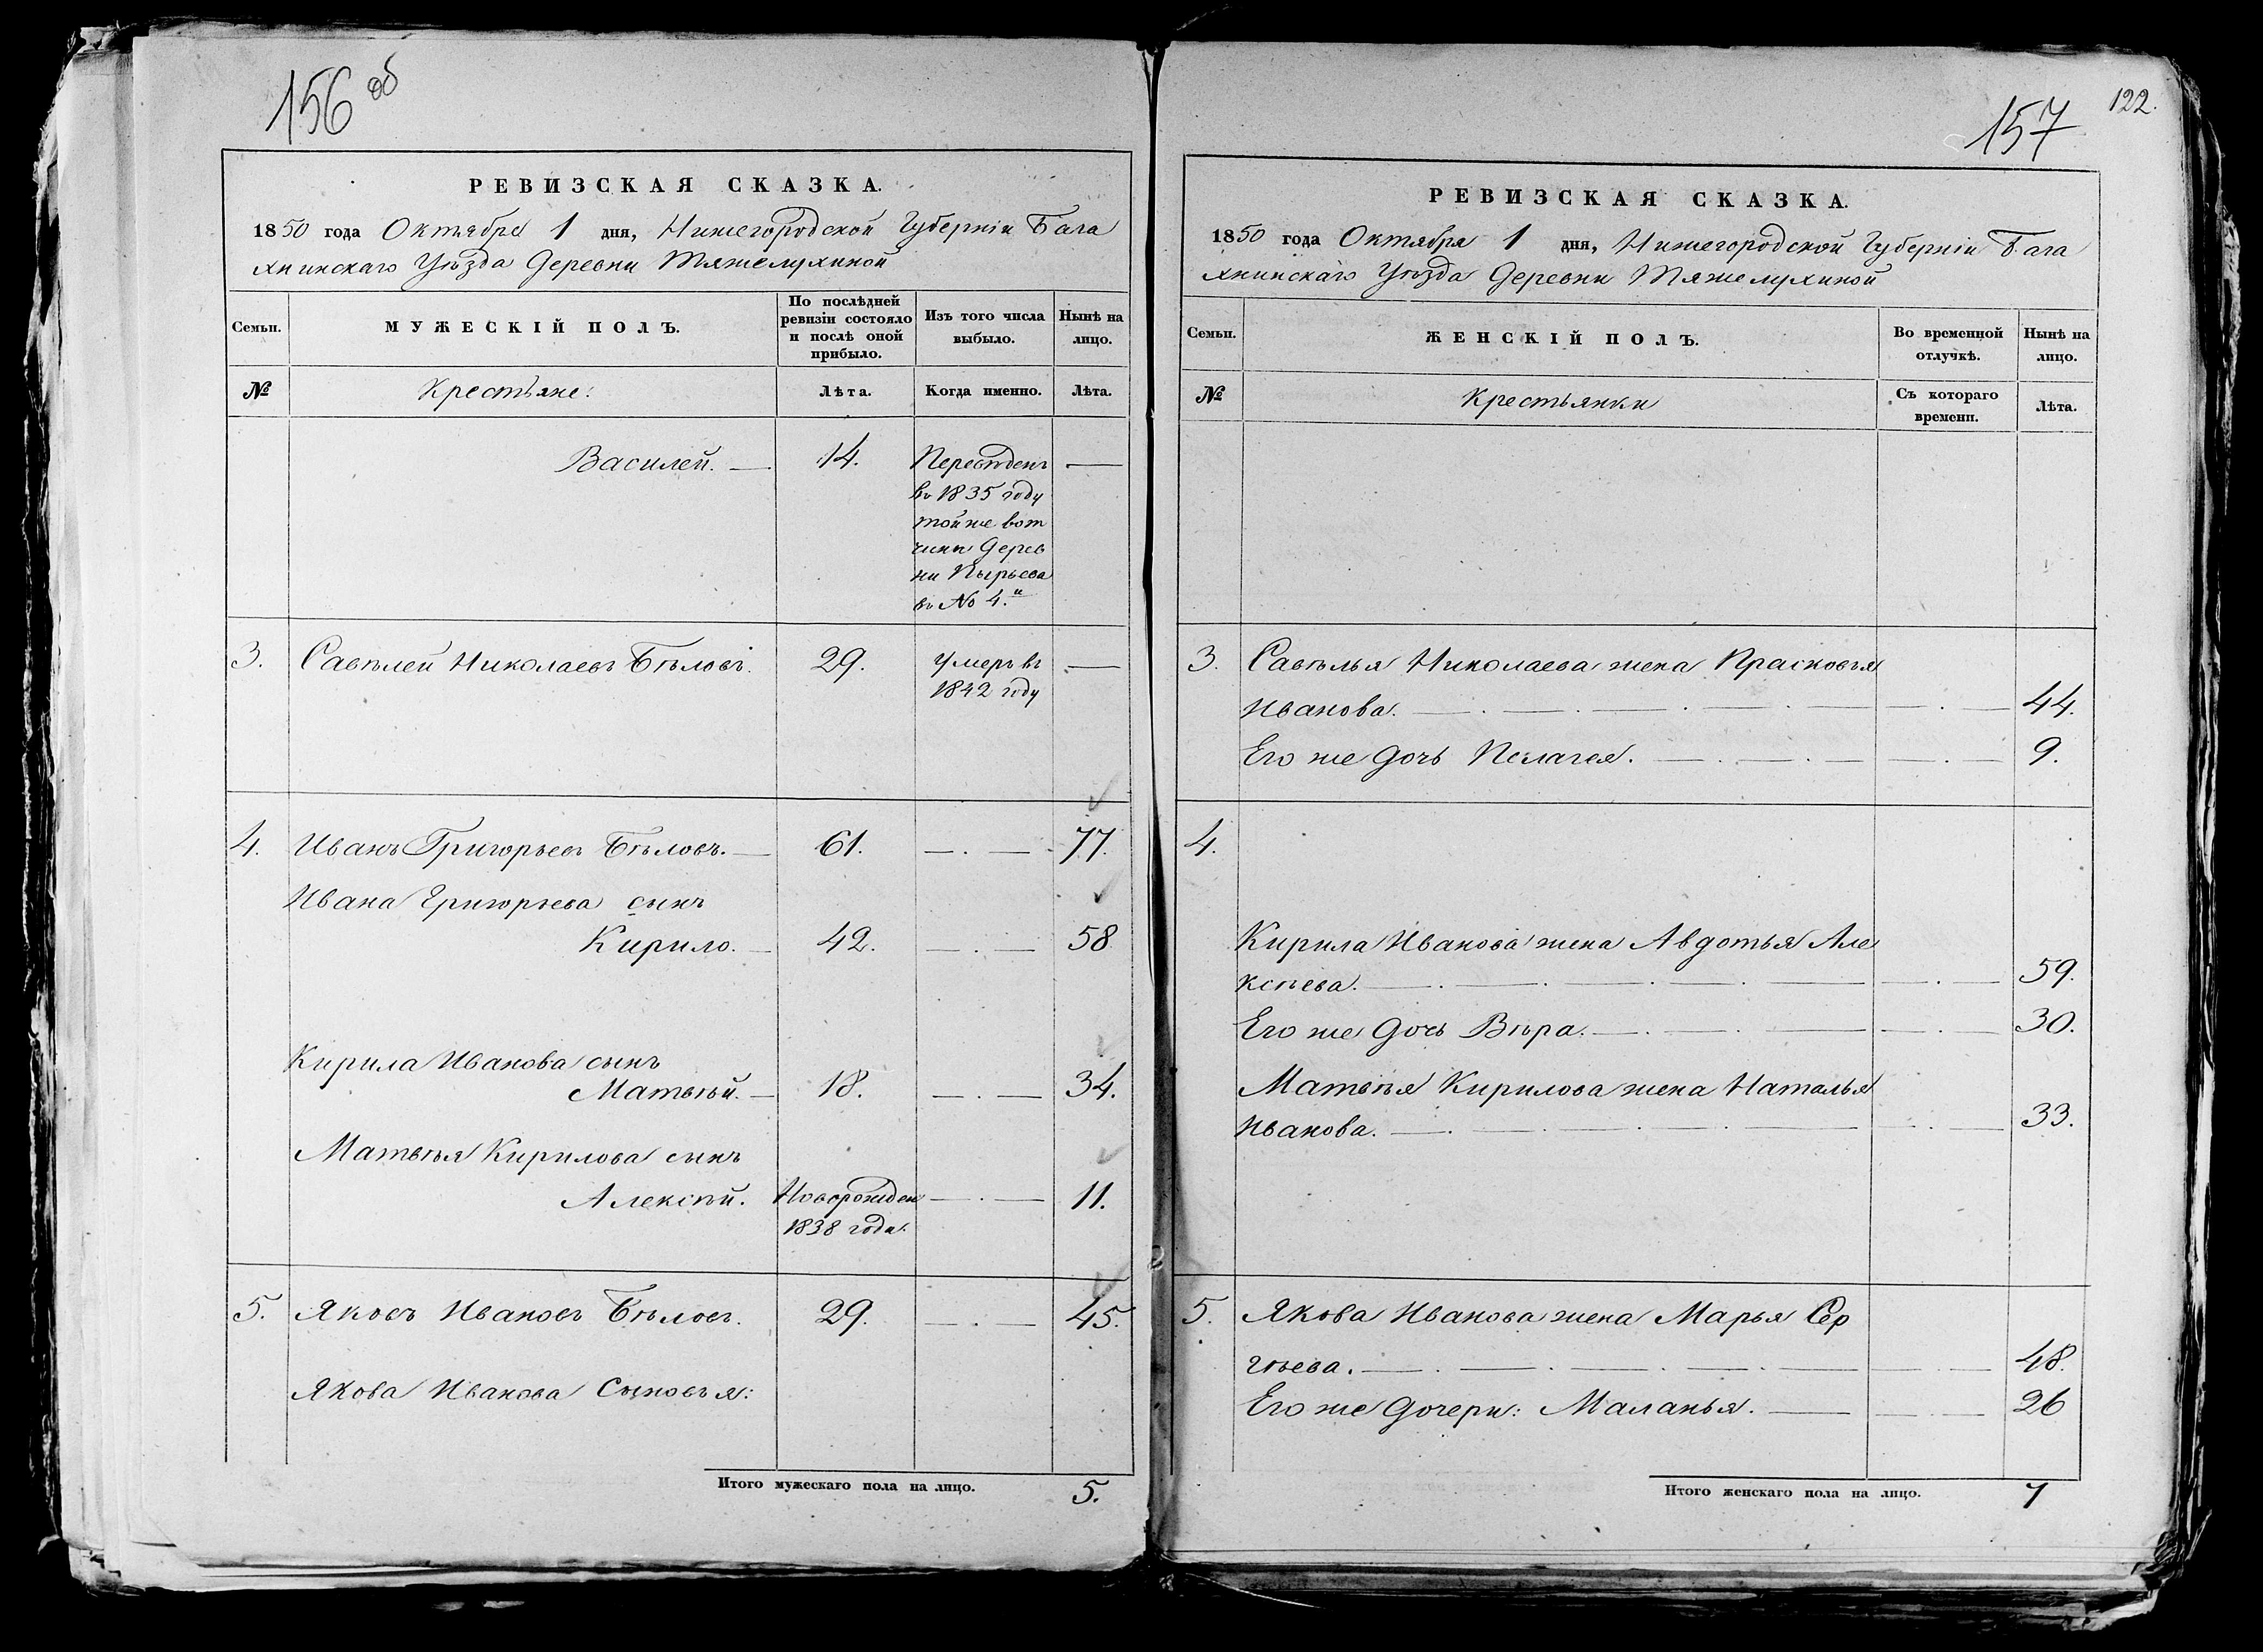 156 об
РЕВИЗСКАЯ СКАЗКА.
1850 года Октября 1 дня, Нижегородской Губерніи Бала
хнинскаго Уѣзда Деревни Тяжелухиной
Семьи.
МУЖЕСКІЙ ПОЛЪ.
По послѣдней
ревизіи состояло
и послѣ оной
прибыло.
Изъ того числа
выбыло.
Нынѣ на
лицо.
№
Крестьяне:
Лѣта.
Когда именно.
Лѣта.
Василей. 14. Переведенъ
въ 1835 году
той же вот
чины Дерев
ни
въ № 4.й
3. Савелей Николаевъ Бѣловъ. 29. Умеръ въ
1842 году
4. Иванъ Григорьевъ Бѣловъ. 61. 77.
Ивана Григорьева сынъ
Кирило. 42. 58
Кирила Иванова сынъ
Матвѣй. 18. 34.
Матвѣя Кирилова сынъ
Алексѣй. Новорожден 11.
1838 года.
5. Яковъ Ивановъ Бѣловъ. 29. 45.
Якова Иванова Сыновья:
Итого мужескаго пола на лицо. 5.
122.
157
РЕВИЗСКАЯ СКАЗКА.
1850 года Октября 1 дня, Нижегородской Губерніи Бала
хнинскаго Уѣзда Деревни Тяжелухиной
Семьи.
ЖЕНСКІЙ ПОЛЪ.
Во временной
отлучкѣ.
Нынѣ на
лицо.
№
Крестьянки
Съ котораго
времени.
Лѣта.
3. Савелья Николаева жена Прасковья
Иванова. 44.
Его же дочь Пелагея. 9.
4.
Кирила Иванова жена Авдотья Але
ксѣева. 59.
Его же дочь Вѣра. 30.
Матвѣя Кирилова жена Наталья
Иванова. 33.
5. Якова Иванова жена Марья Сер
гѣева. 48.
Его же дочери: Маланья. 26
Итого женскаго пола на лицо. 7